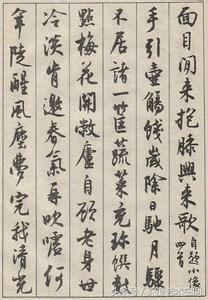 面目閒来抱膝興来歌
自題小像
手引壺觴餞歲除日馳月驟
不居諸一筐蔬菜充珍饌數
點梅花開敝廬自顧老身世
冷淡肯邀春氣再吹噓何
年陡醒風塵夢完我清光